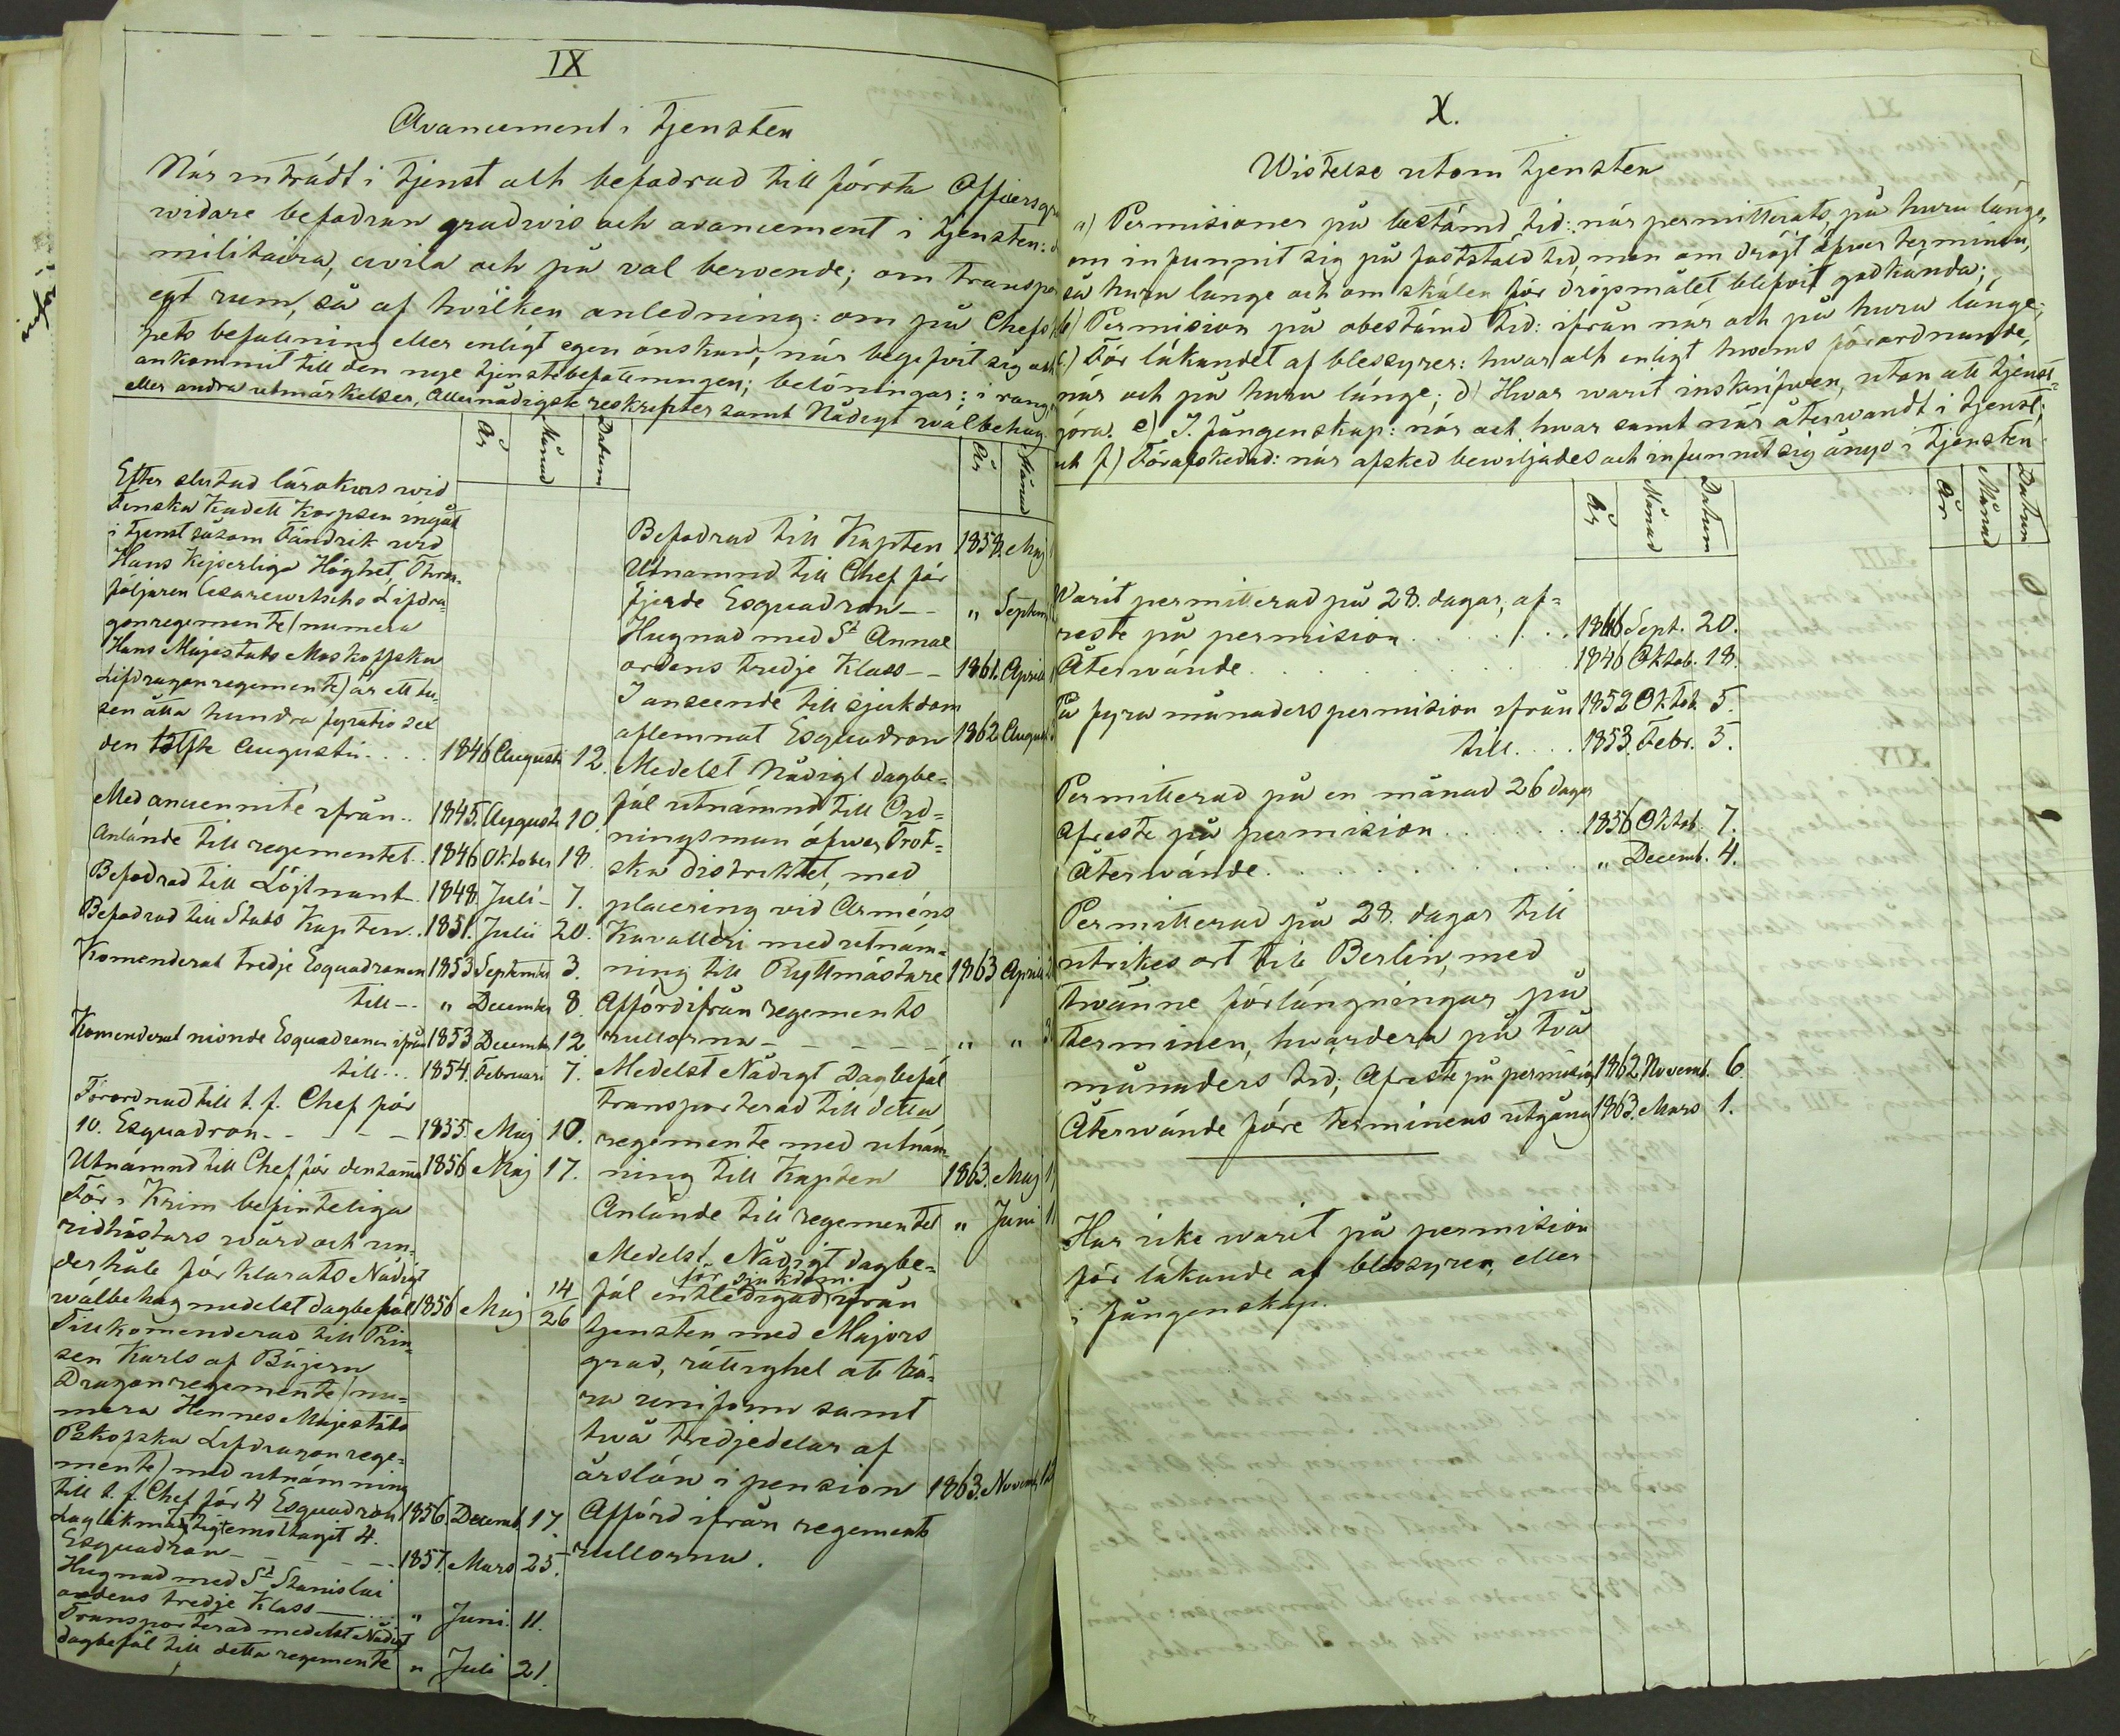 IX
Avancement i tjensten
När inträdt i tjenst och befodrad till första Officersgra
widare befodran gradwis och avancement i tjensten:
militaira, civila och på val beroende; om transpor
egt rum, så af hvilken anledning: om på Chefs
pets befallning eller enligt egen önskan; när begifvit sig och
ankommit till den nya tjenstebefattningen; belöningar: i rang,
eller andra utmärkelser, Allernådigste reskripter samt Nådigt wälbehag.
År Månad Datum
År Månad
Efter slutad lärokurs wid
Finska Kadett Korpsen ingått
i tjenst såsom Fändrik wid
Hans Kejserliga Höghet, Thron-
följaren Cesarewitschs Lifdra-
gonregemente (numera
Hans Majestäts Moskoffska
Lifdragonregemente) år ett tu-
sen åtta hundra fyratio sex
den tolfte Augusti.... 1846 Augusti 12.
Med anciennité ifrån.. 1845. Augusti 10.
Anlände till regementet.. 1846 Oktober 18.
Befodrad till Löjtnant. 1848. Juli 7.
Befodrad till Stabs Kapten.. 1851. Julii 20.
Komenderat tredje Esquadronen 1853 September 3.
till.. " December 8.
Komenderat nionde Esquadronen ifrån 1853 December 12
till... 1854. Februari 7.
Förordnad till t. f. Chef för
10. Esquadron - - - - 1855. Maj 10.
Utnämnd till Chef för densamma 1856 Maj 17.
För i Krim befinteliga
ridhästars wård och un-
derhåll förklarats Nådigt
wälbehag medelst dagbefäl 1856 Maj 14/26
Tillkomenderad till Prin-
sen Karls af Bajern
Dragonregemente (nu-
mera Hennes Majestäts
Pskofska Lifdragonrege-
mente) med utnämning
till t. f. Chef för 4 Esquadron 1856 Decemb. 17.
Laglikmätigt emottagit 4.
Esquadron - - - - - 1857. Mars 25.
Hugnad med St Stanislai
ordens tredje Klass ... " Juni. 11.
Transporterad medelst Nådigt
dagbefäl till detta regemente " Juli 21.
Befodrad till Kapten 1858. Maj
Utnämnd till Chef för
fjerde Esquadron - - " Septem
Hugnad med St Annae
ordens tredje Klass - - 1861. April
I anseende till sjukdom
aflemnat Esquadron 1862 August
Medelst Nådigt dagbe-
fäl utnämnd till Ord-
ningsman öfwer Trot-
ska distriktet, med
placering vid Arméns
Kavalleri med utnäm-
ning till Ryttmästare 1863 April
Afförd ifrån regements
rullorna - - - - - " " 3
Medelst Nådigt Dagbefäl
transporterad till detta
regemente med utnäm
ning till Kapten 1863. Maj 1
Anlände till regementet " Juni 1
Medelst Nådigt dagbe-
för sjukdom.
fäl entledigad ifrån
tjensten med Majors
grad, rättighet att bä-
ra uniform samt
två tredjedelar af
årslön i pension 1863. Novemb.
Afförd ifrån regements
rullorna.
X.
Wistelse utom tjensten
a) Permisioner på bestämd tid: när permitterats, på huru länge,
om infunnit sig på fastställd tid, men om dröjt öfwer terminen,
så huru länge och om skälen för dröjsmålet blifvit godkända;
b) Permision på obestämd tid: ifrån när och på huru länge;
c.) För läkandet af blessyrer: hwar och enligt hwems förordnande,
när och på huru länge; d) Hwar warit inskrifwen, utan att tjenst-
göra. e) I fångenskap: när och hwar samt när återwandt i tjenst;
och f) Förafskedad: när afsked bewiljades och infunnit sig ånyo i tjensten
År Månad Datum
År Månad Datum
Warit permitterad på 28. dagar, af-
reste på permision . . . . . . 1846 Sept. 20.
Återwände . . . . . . . 1846 Oktob. 18.
På fyra månaders permision ifrån 1852 Oktob. 5.
till.... 1853. Febr. 5.
Permitterad på en månad 26 dagar
afreste på permision . . . . . 1856 Oktob. 7.
Återwände . . . . . . . . " Decemb. 4.
Permitterad på 28. dagar till
utrikes ort till Berlin, med
twänne förlängningar på
terminen, hwardera på två
månaders tid; Afreste på permision 1862 Novemb. 6
Återwände före terminens utgång 1863. Mars 1.
Har icke warit på permision
för läkande af blessyrer, eller
i fångenskap.